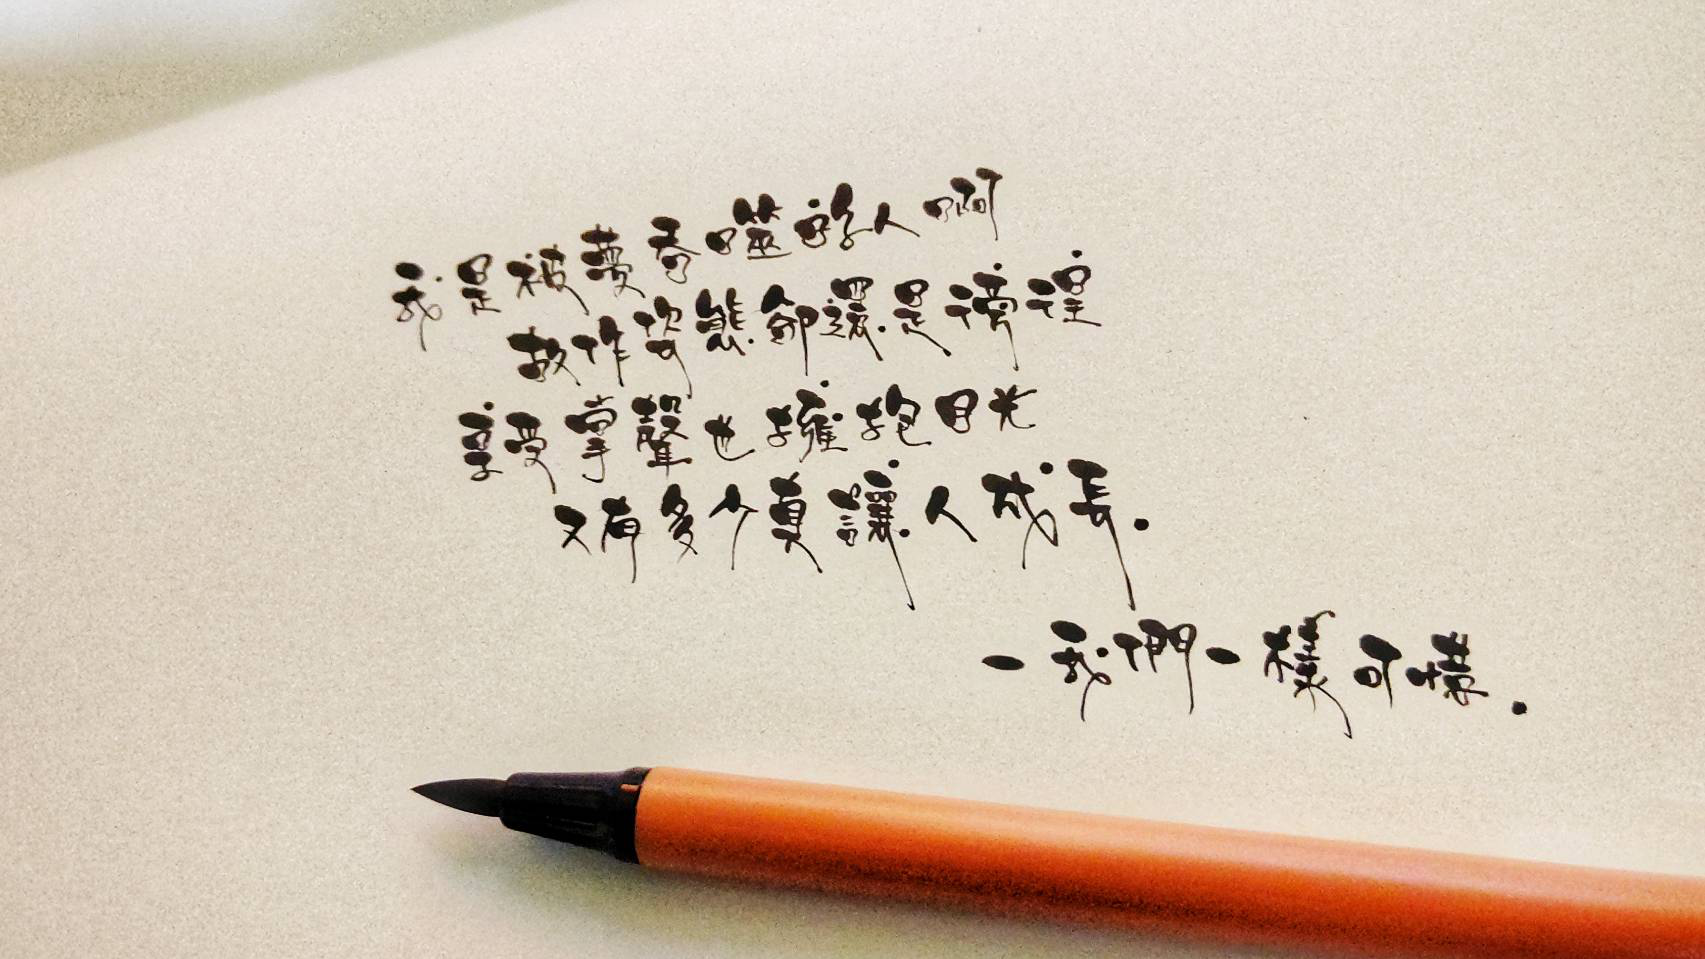 我是被夢吞噬的人啊
故作姿態卻還是徬徨
享受掌聲也擁抱目光
又有多少真讓人成長.
-我們一樣可憐.